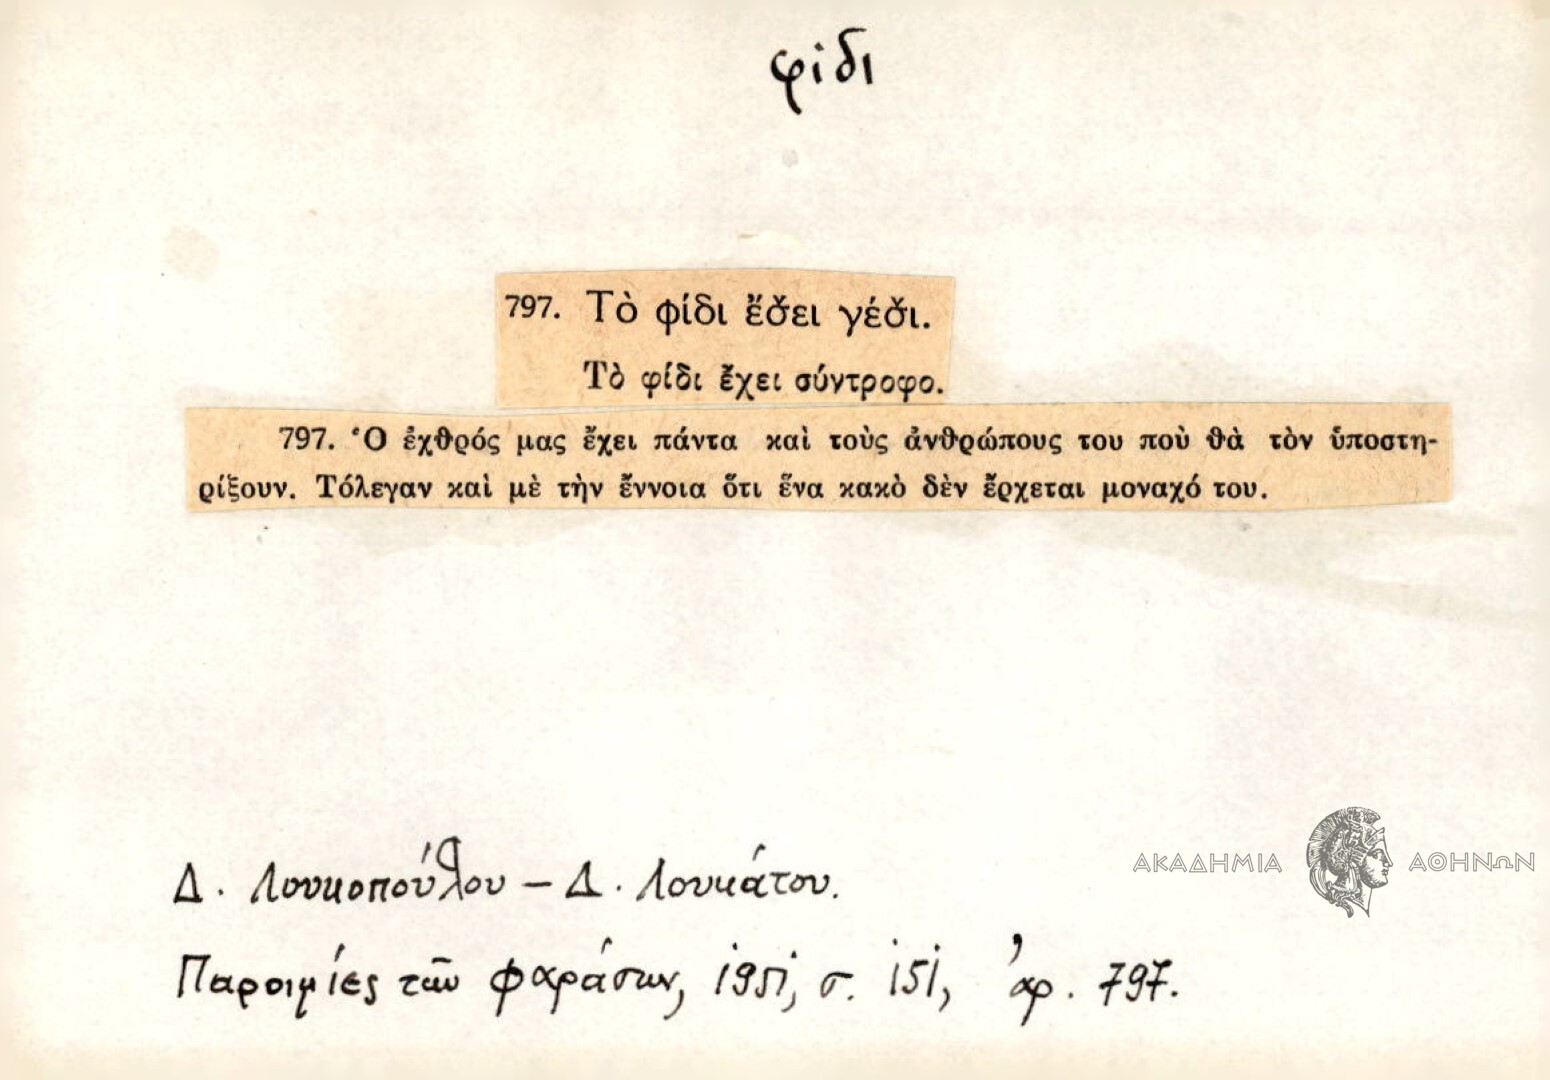 φίδι
797. Τὸ φίδι ἔσ̌ει γέσ̌ι.
Τὸ φίδι ἔχει σύντροφο.
797. Ὁ ἐχθρός μας ἔχει πάντα καὶ τοὺς ἀνθρώπους του ποὺ θὰ τὸν ὑποστη-
ρίξουν. Τόλεγαν καὶ μὲ τὴν ἔννοια ὅτι ἕνα κακὸ δὲν ἔρχεται μοναχό του.
ΑΚΑΔΗΜΙΑ ΑΘΗΝΩΝ
Δ. Λουκοπούλου – Δ. Λουκάτου.
Παροιμίες τῶν Φαράσων, 1951, σ. 151, ἀρ. 797.